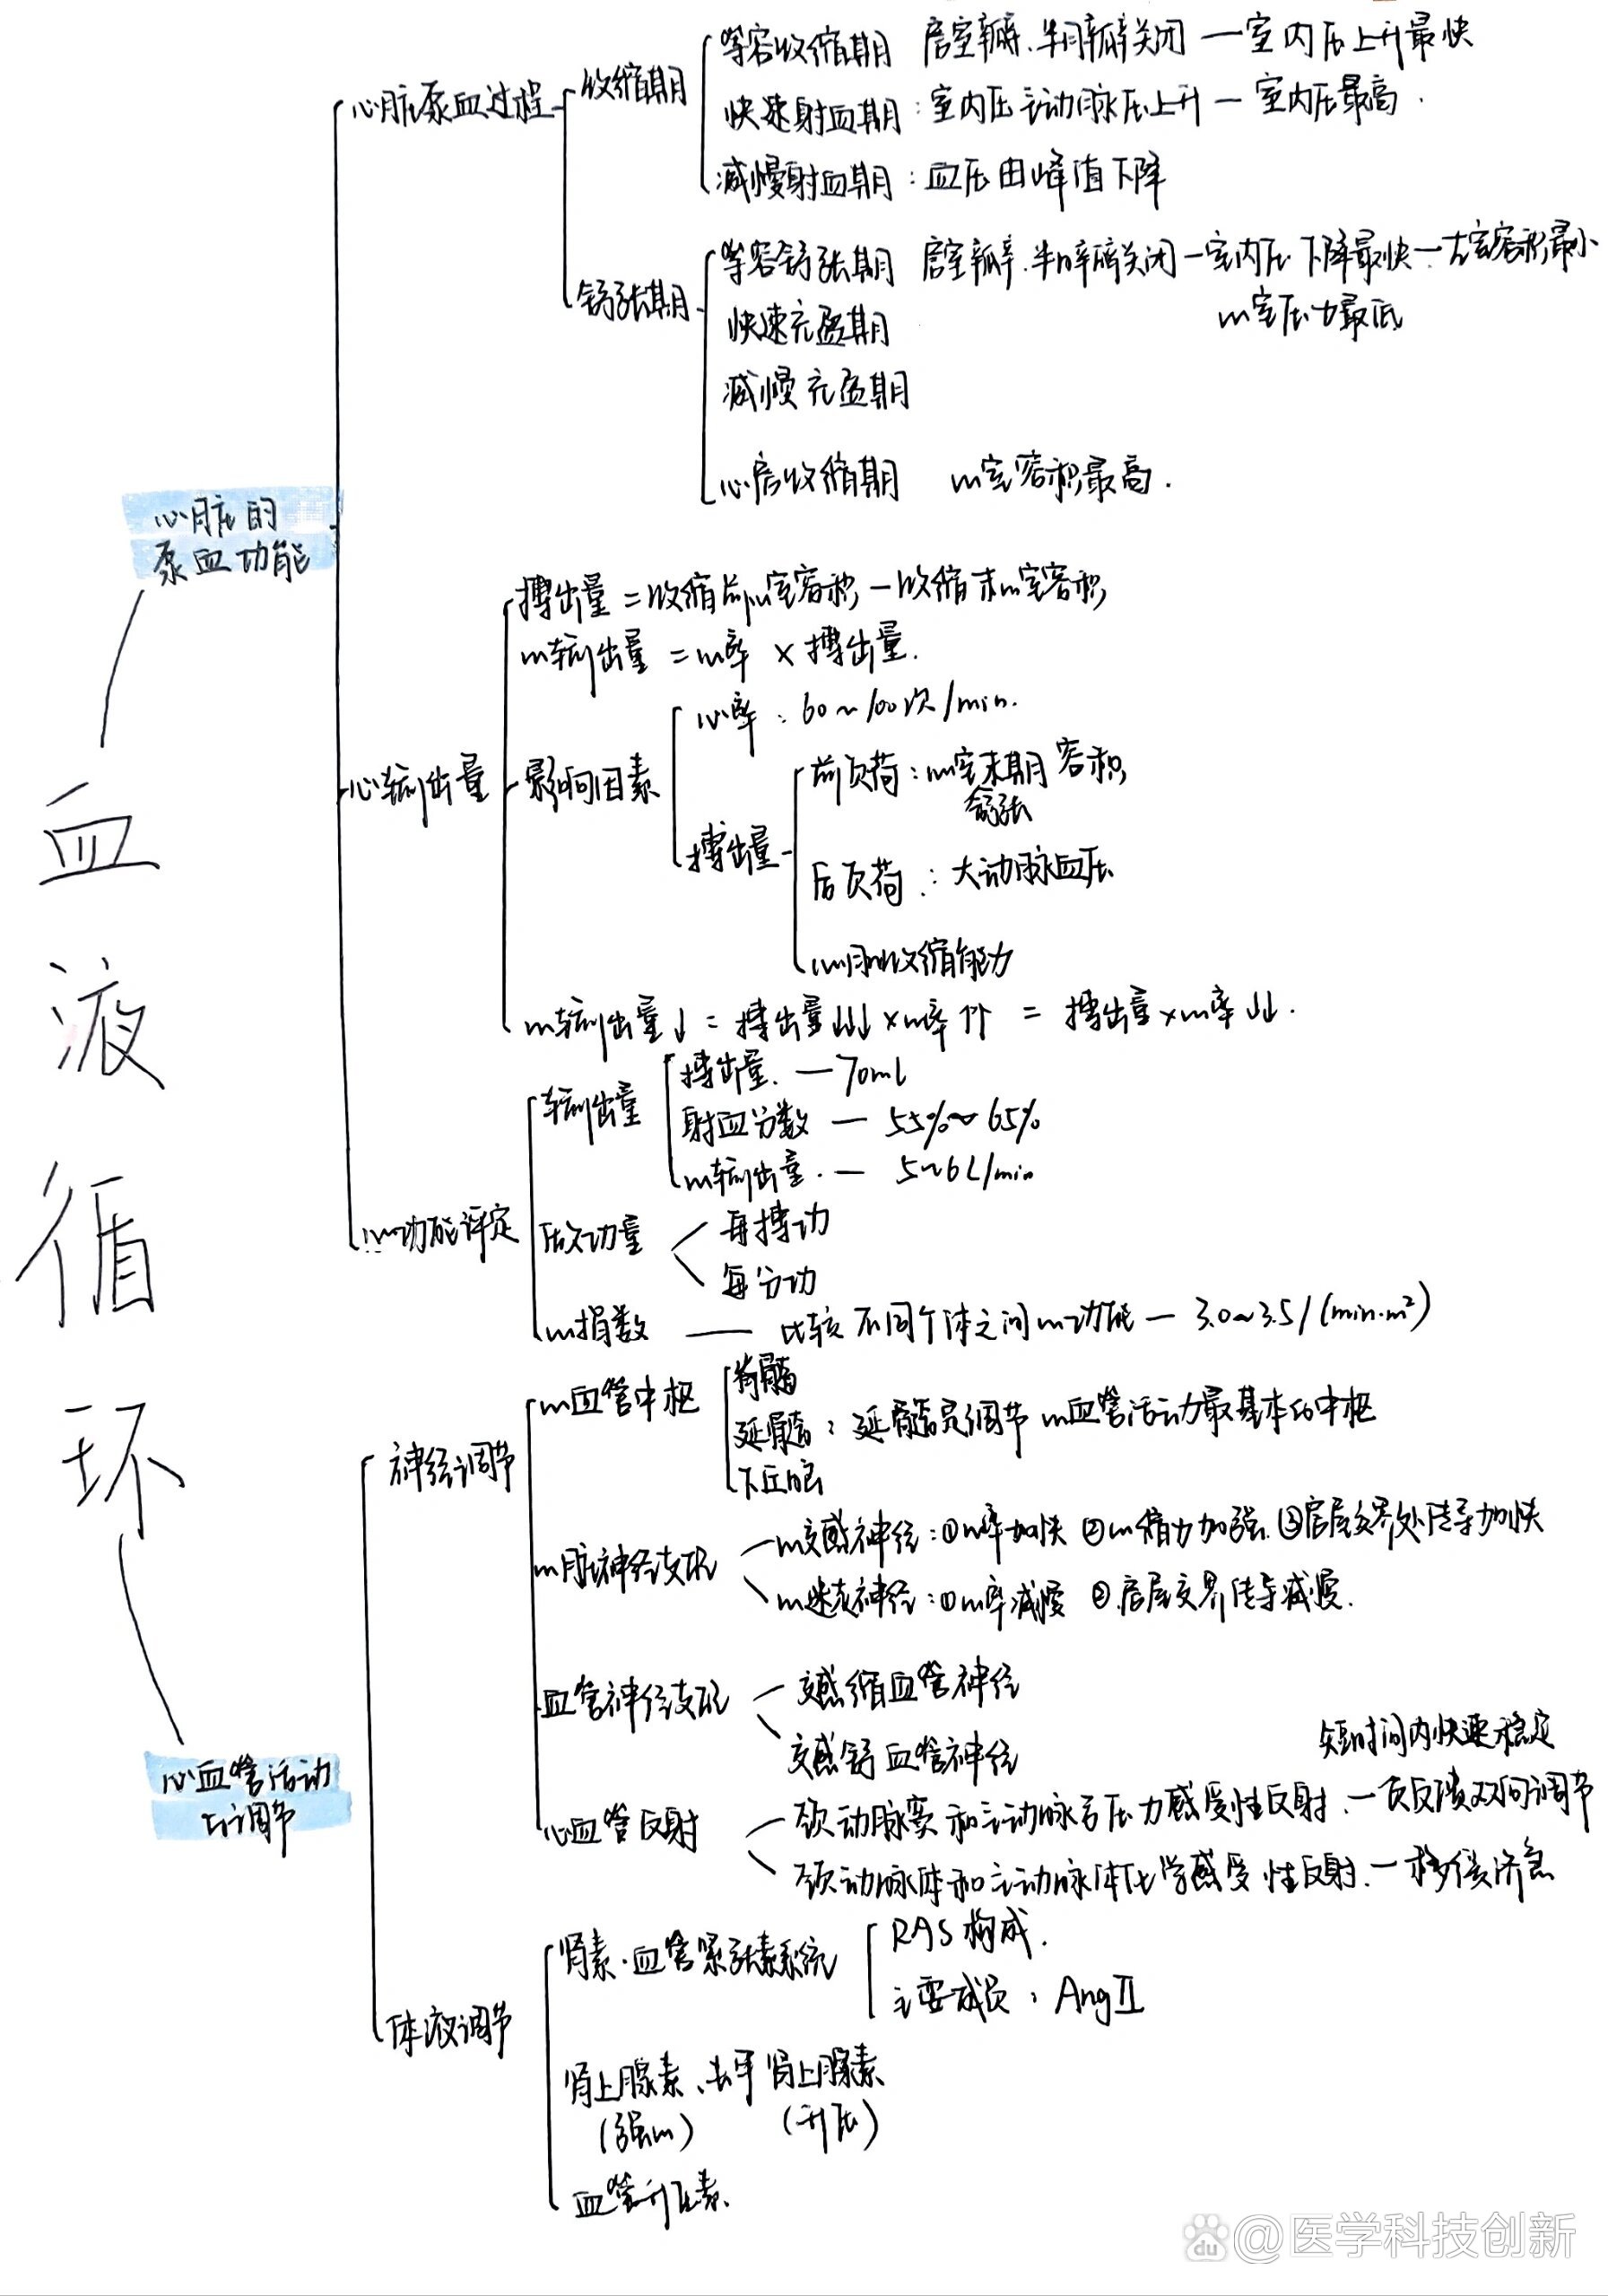 血液循环
心脏的
泵血功能
心脏泵血过程
收缩期
等容收缩期 房室瓣.半月瓣关闭 — 室内压上升最快
快速射血期：室内压 主动脉压上升 — 室内压最高.
减慢射血期：血压由峰值下降
舒张期
等容舒张期 房室瓣.半月瓣关闭 — 室内压下降最快 — 左室容积最小
心室压力最低
快速充盈期
减慢充盈期
心房收缩期 心室容积最高.
心输出量
搏出量 = 收缩前心室容积 — 收缩末心室容积
心输出量 = 心率 × 搏出量.
影响因素
心率：60~100次/min.
搏出量
前负荷：心室末期容积
舒张
后负荷：大动脉血压
心肌收缩能力
心输出量↓ = 搏出量↓↓↓ × 心率↑↑ = 搏出量 × 心率↓↓.
心功能评定
输出量
搏出量. — 70ml
射血分数 — 55%~65%
心输出量. — 5~6L/min
做功量
每搏功
每分功
心指数 — 比较不同个体之间心功能 — 3.0~3.5/(min·m²)
心血管活动
与调节
神经调节
心血管中枢
脊髓
延髓：延髓是调节心血管活动最基本的中枢
下丘脑
心脏神经支配
心交感神经：①心率加快 ②心缩力加强 ③房室交界处传导加快
心迷走神经：①心率减慢 ②房室交界传导减慢.
血管神经支配
交感缩血管神经
交感舒血管神经
心血管反射
短时间内快速稳定
颈动脉窦和主动脉弓压力感受性反射. — 负反馈双向调节
颈动脉体和主动脉体化学感受性反射. — 移缓济急
体液调节
肾素·血管紧张素系统
RAS构成.
主要成员：AngⅡ
肾上腺素、去甲肾上腺素
(强心) (升压)
血管升压素.
du @医学科技创新